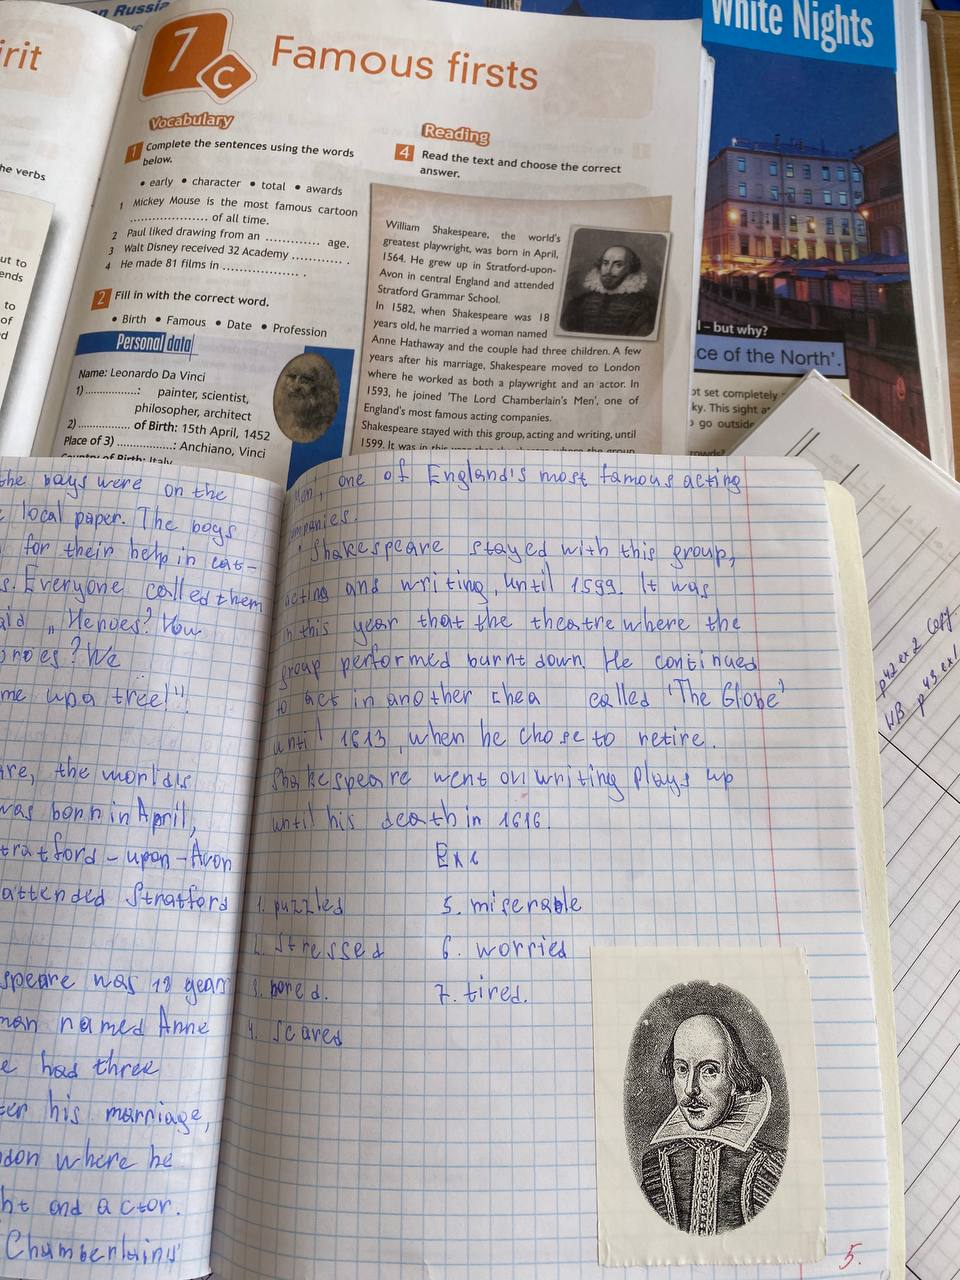 n Russia
irit
he verbs
ut to
ends
to
of
d
7 c Famous firsts
Vocabulary
1 Complete the sentences using the words
below.
• early • character • total • awards
1 Mickey Mouse is the most famous cartoon
.................... of all time.
2 Paul liked drawing from an ............. age.
3 Walt Disney received 32 Academy ............ .
4 He made 81 films in .................. .
2 Fill in with the correct word.
• Birth • Famous • Date • Profession
Personal data
Name: Leonardo Da Vinci
1) ..............: painter, scientist,
philosopher, architect
2) .............. of Birth: 15th April, 1452
Place of 3) ..............: Anchiano, Vinci
Country of Birth: Italy
Reading
4 Read the text and choose the correct
answer.
William Shakespeare, the world's
greatest playwright, was born in April,
1564. He grew up in Stratford-upon-
Avon in central England and attended
Stratford Grammar School.
In 1582, when Shakespeare was 18
years old, he married a woman named
Anne Hathaway and the couple had three children. A few
years after his marriage, Shakespeare moved to London
where he worked as both a playwright and an actor. In
1593, he joined 'The Lord Chamberlain's Men', one of
England's most famous acting companies.
Shakespeare stayed with this group, acting and writing, until
1599. It was in this year that the theatre where the group
White Nights
l – but why?
ce of the North'.
ot set completely
ky. This sight a
o go outside
rowds?
the boys were on the
e local paper. The boys
for their help in cat-
s. Everyone called them
aid „Heroes? How
oroes? We
me upa tree!"
are, the world's
was born in April,
tratford-upon-Avon
attended Stratford
speare was 18 years
man named Anne
e had three
ter his marriage,
ndon where he
ht and actor.
Chamberlains'
Men', one of England's most famous acting
ompanies.
Shakespeare stayed with this group,
acting and writing, until 1599. It was
in this year that the theatre where the
group performed burnt down. He continued
to act in another thea called 'The Globe'
until 1613, when he chose to retire.
Shakespeare went on writing plays up
until his death in 1616.
Ex 6
1. puzzled
2. stressed
3. bored.
4. scared
5. miserable
6. worried
7. tired.
5.
p42 ex 2 copy
WB p43 ex1